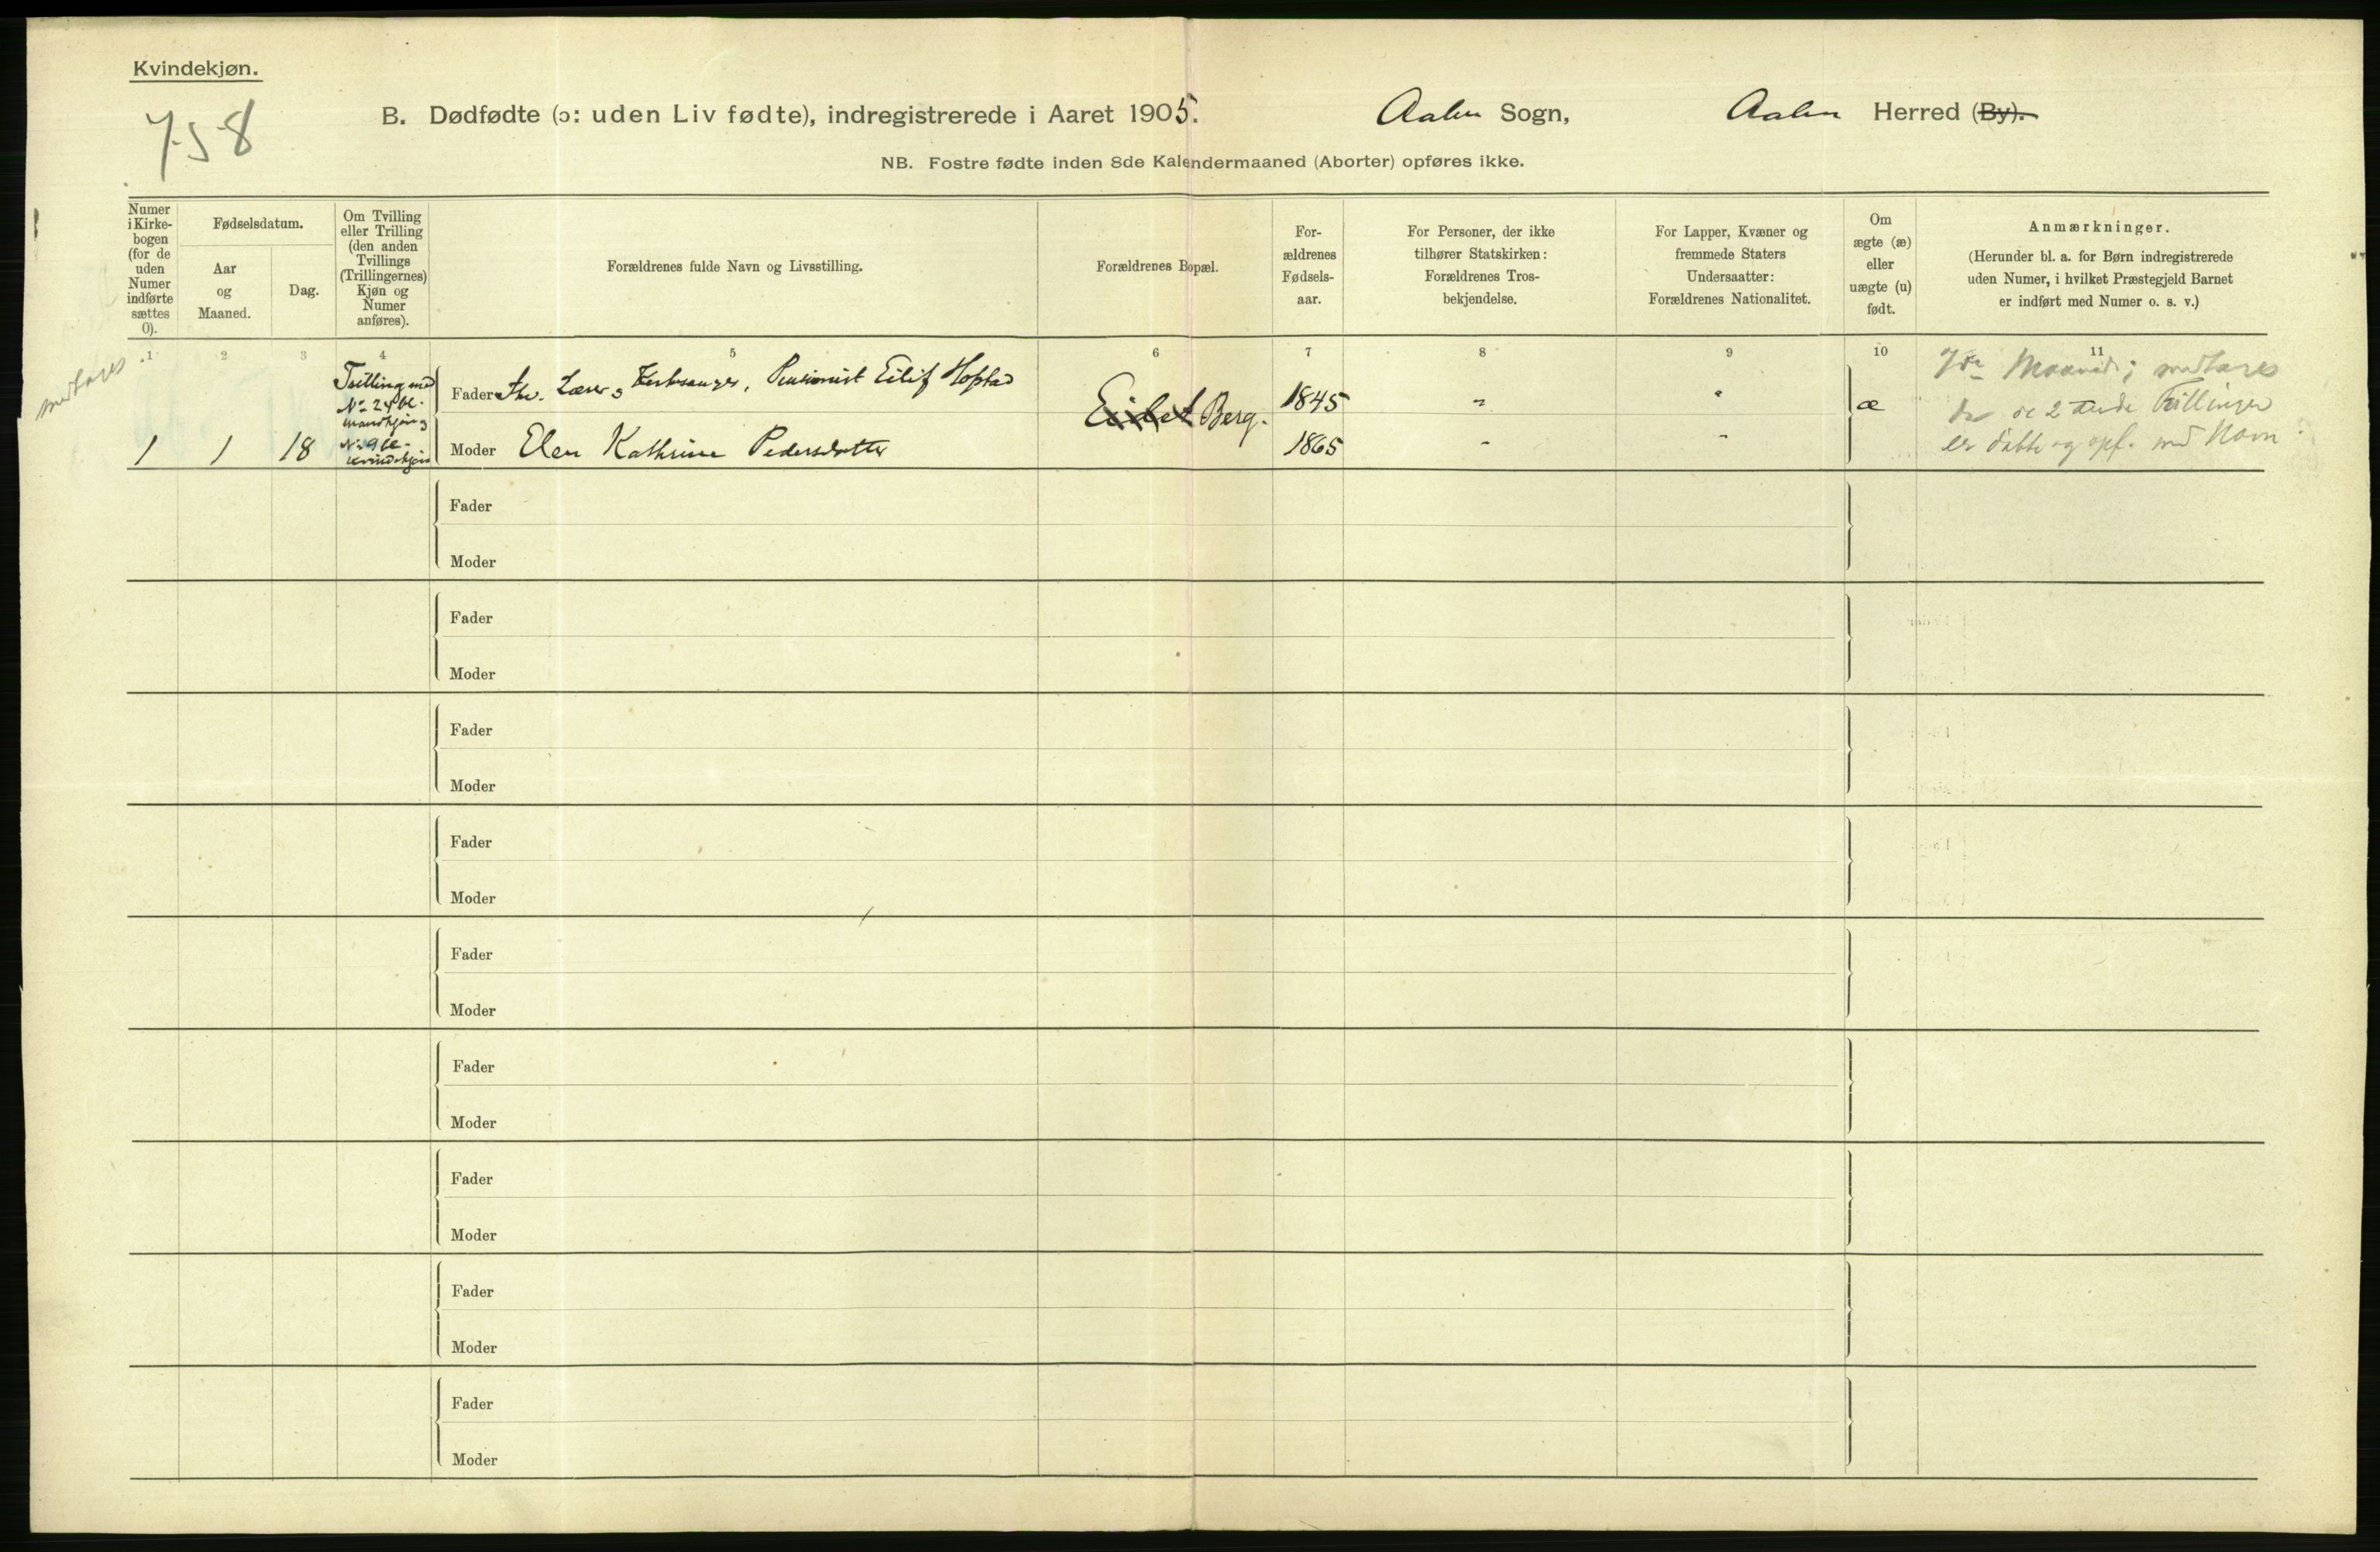 Kvindekjøn.
758
B. Dødfødte (ɔ: uden Liv fødte), indregistrerede i Aaret 1905. Aalen Sogn, Aalen Herred (By).
NB. Fostre fødte inden 8de Kalendermaaned (Aborter) opføres ikke.
Numer i Kirkebogen (for de uden Numer indførte sættes 0).
Fødselsdatum.
Aar og Maaned.
Dag.
Om Tvilling eller Trilling (den anden Tvillings (Trillingernes) Kjøn og Numer anføres).
Forældrenes fulde Navn og Livsstilling.
Forældrenes Bopæl.
Forældrenes Fødselsaar.
For Personer, der ikke tilhører Statskirken: Forældrenes Trosbekjendelse.
For Lapper, Kvæner og fremmede Staters Undersaatter: Forældrenes Nationalitet.
Om ægte (æ) eller uægte (u) født.
Anmærkninger.
(Herunder bl. a. for Børn indregistrerede uden Numer, i hvilket Præstegjeld Barnet er indført med Numer o. s. v.)
1 2 3 4 5 6 7 8 9 10 11
medtages
1 1 18
Trilling med
No 24 bl.
Mandkjøn og
No 9 bl.
Kvindekjøn
Fader Lærer, Kirkesanger, Pensionist Eilif Hofstad
Moder Elen Kathrine Pedersdatter
Eidet Berg.
1845 " "
1865 " "
æ
7de Maaned; medtages
da de 2 andre Trillinger
er døbte og opf. med Navn
Fader
Moder
Fader
Moder
Fader
Moder
Fader
Moder
Fader
Moder
Fader
Moder
Fader
Moder
Fader
Moder
Fader
Moder